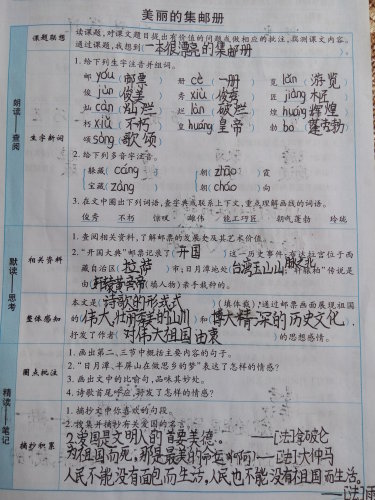 美丽的集邮册
课题联想
读课题,对课文题目提出有价值的问题或做相应的批注,猜测课文内容。
通过课题,我想到 一本很漂亮的集邮册
朗读——查阅
生字新词
1. 给下列生字注音并组词。
邮 yóu ( 邮票 ) 册 cè ( 一册 ) 览 lǎn ( 游览 )
俊 jùn ( 俊美 ) 秀 xiù ( 俊秀 ) 匠 jiàng ( 木匠 )
灿 càn ( 灿烂 ) 烂 làn ( 破烂 ) 煌 huáng ( 辉煌 )
朽 xiǔ ( 不朽 ) 皇 huáng ( 皇帝 ) 勃 bó ( 蓬勃 )
颂 sòng ( 歌颂 )
2. 给下列多音字注音。
躲藏 ( cáng ) 朝 ( zhāo ) 霞
宝藏 ( zàng ) 朝 ( cháo ) 向
3. 在文中圈出下列词语,查字典或联系上下文,重点理解画线的词语。
俊秀 不朽 惊叹 雄伟 能工巧匠 朝气蓬勃 玲珑
默读——思考
相关资料
1. 查阅相关资料,了解邮票的发展史及其艺术价值。
2. “开国大典”邮票记录了( 开国 )这一历史事件;布达拉宫位于西
藏自治区( 拉萨 )市;日月潭地处( 台湾玉山山脉之北 );“轩辕柏”传说是
由( 轩辕黄帝 )(填人物)亲手栽种的。
整体感知
本文是( 诗歌的形式 )(填体裁),通过邮票画面展现祖国
的( 伟大,壮丽秀美的山川 )和( 博大精深的历史文化 ),
抒发了作者( 对伟大祖国由衷 )的思想感情。
精读——笔记
圈点批注
1. 画出第二、三节中概括主要内容的句子。
2. “日月潭、半屏山在做思乡的梦”表达了怎样的感情?
3. 画出文中的比喻句,品味其妙处。
4. 诗歌首尾呼应,抒发了怎样的感情?
摘抄积累
1. 摘抄文中你喜欢的句段。
2. 搜集并摘抄有关爱国的名言。
2.爱国是文明人的首要美德。——[法]拿破仑
为祖国而死,那是最美的命运啊!——[法]大仲马
人民不能没有面包而生活,人民也不能没有祖国而生活。
——[法]雨